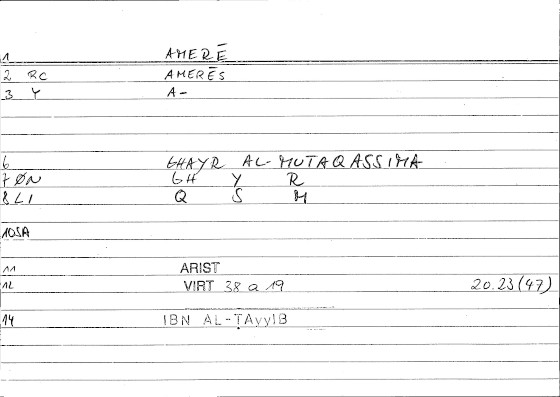 1 AMERĒ
2 RC AMERĒS
3 Y A-
6 GHAYR AL-MUTAQASSIMA
7 ØN GH Y R
8 LI Q S M
10 SA
11 ARIST
12 VIRT 38 a 19 20.23(47)
14 IBN AL-ṬAyyIB